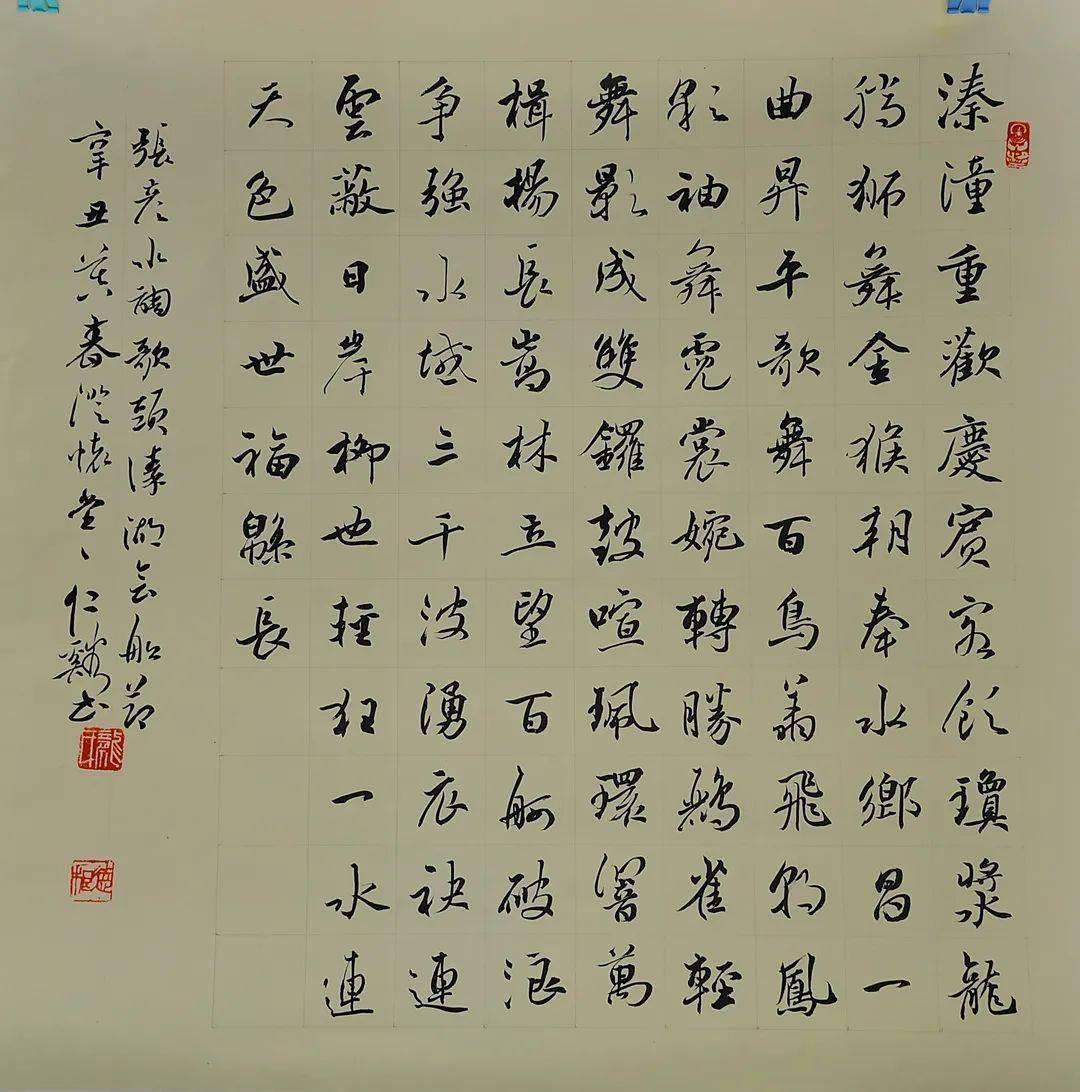 溱潼重歡慶賓客飲瓊漿龍
腾狮舞金猴朝奉水鄉昌一
曲昇平歌舞百鳥飛朝鳳
彩袖舞霓裳婉轉勝鶯雀輕
舞影成雙鑼鼓喧珮環響萬
楫揚長嵩林立望百舸破浪
争強水域三千波湧衣袂連
雲蔽日岸柳也輕狂一水連
天色盛世福緜長
張彦水調歌頭溱湖会船節
辛丑暮春澄懷堂仁谿书